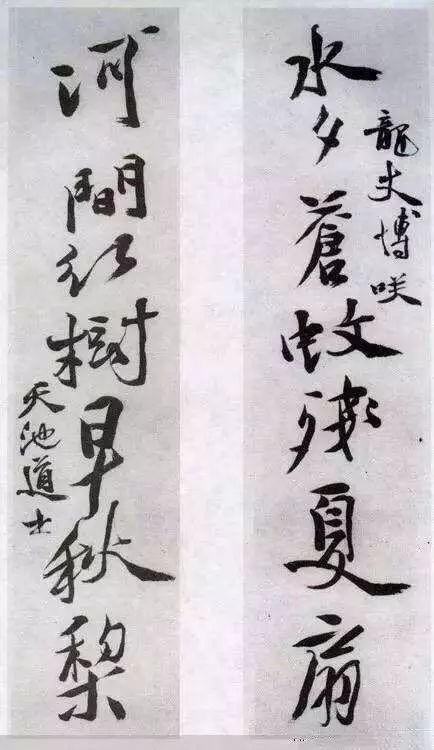 水乡蒼蚊殘夏扇
龍丈博咲
河間紅樹早秋梨
天池道士